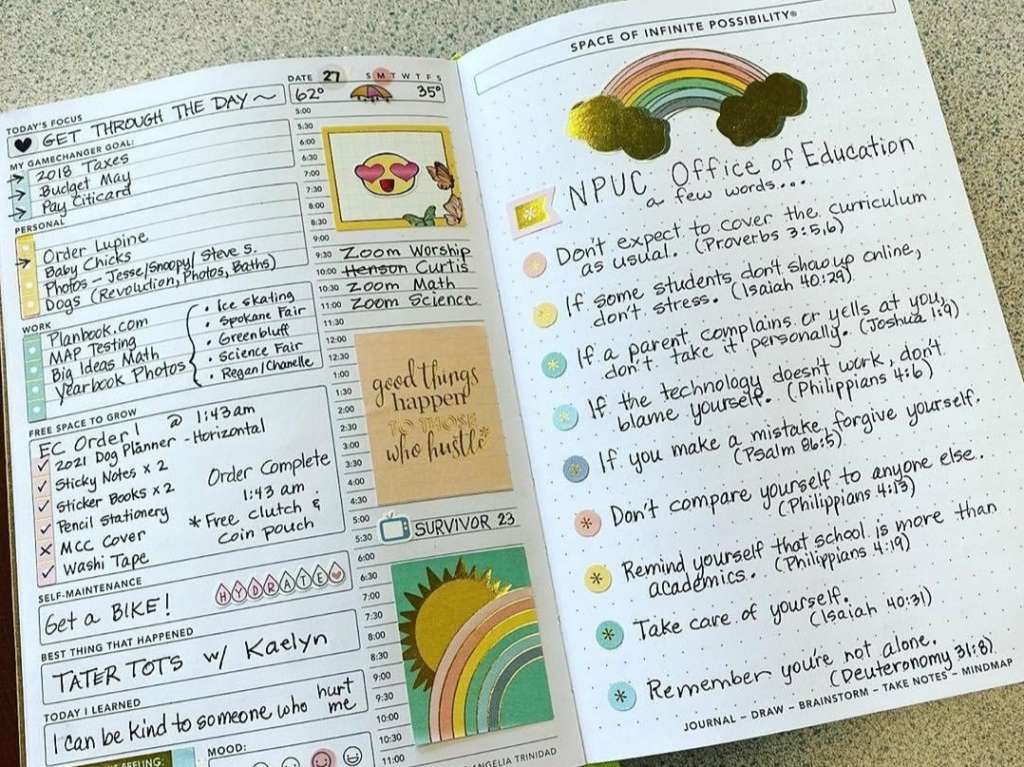 TODAY'S FOCUS
GET THROUGH THE DAY ~
MY GAMECHANGER GOAL:
→ 2018 Taxes
→ Budget May
→ Pay Citicard
PERSONAL
Order Lupine
→ Baby Chicks
Photos - Jesse/Snoopy/Steve S.
Dogs (Revolution, Photos, Baths)
WORK
Planbook.com
MAP Testing
Big Ideas Math
Yearbook Photos
• Ice skating
• Spokane Fair
• Greenbluff
• Science Fair
• Regan/Chanelle
FREE SPACE TO GROW
EC Order! @ 1:43am
✓ 2021 Dog Planner - Horizontal
✓ Sticky Notes x 2
✓ Sticker Books x 2
✓ Pencil Stationery
✗ MCC Cover
✓ Washi Tape
Order Complete
1:43 am
* Free clutch &
coin pouch
SELF-MAINTENANCE
HYDRATE
Get a BIKE!
BEST THING THAT HAPPENED
TATER TOTS w/ Kaelyn
TODAY I LEARNED
I can be kind to someone who hurt
me
FEELING:
MOOD:
DATE 27 S M T W T F S
62° 35°
5:00
5:30
6:00
6:30
7:00
7:30
8:00
8:30
9:00
9:30 Zoom Worship
10:00 Henson Curtis
10:30 Zoom Math
11:00 Zoom Science
11:30
12:00
12:30
1:00
1:30
2:00
2:30
3:00
3:30
4:00
4:30
good things
happen
TO THOSE
who hustle*
5:00
5:30
SURVIVOR 23
6:00
6:30
7:00
7:30
8:00
8:30
9:00
9:30
10:00
10:30
11:00
ANGELIA TRINIDAD
SPACE OF INFINITE POSSIBILITY®
NPUC Office of Education
a few words....
Don't expect to cover the curriculum
as usual. (Proverbs 3:5,6)
If some students don't show up online,
don't stress. (Isaiah 40:29)
If a parent complains or yells at you,
don't take it personally. (Joshua 1:9)
If the technology doesn't work, don't
blame yourself. (Philippians 4:6)
If you make a mistake, forgive yourself.
(Psalm 86:5)
Don't compare yourself to anyone else.
(Philippians 4:13)
Remind yourself that school is more than
academics. (Philippians 4:19)
Take care of yourself.
(Isaiah 40:31)
Remember you're not alone.
(Deuteronomy 31:8)
JOURNAL – DRAW – BRAINSTORM – TAKE NOTES – MINDMAP